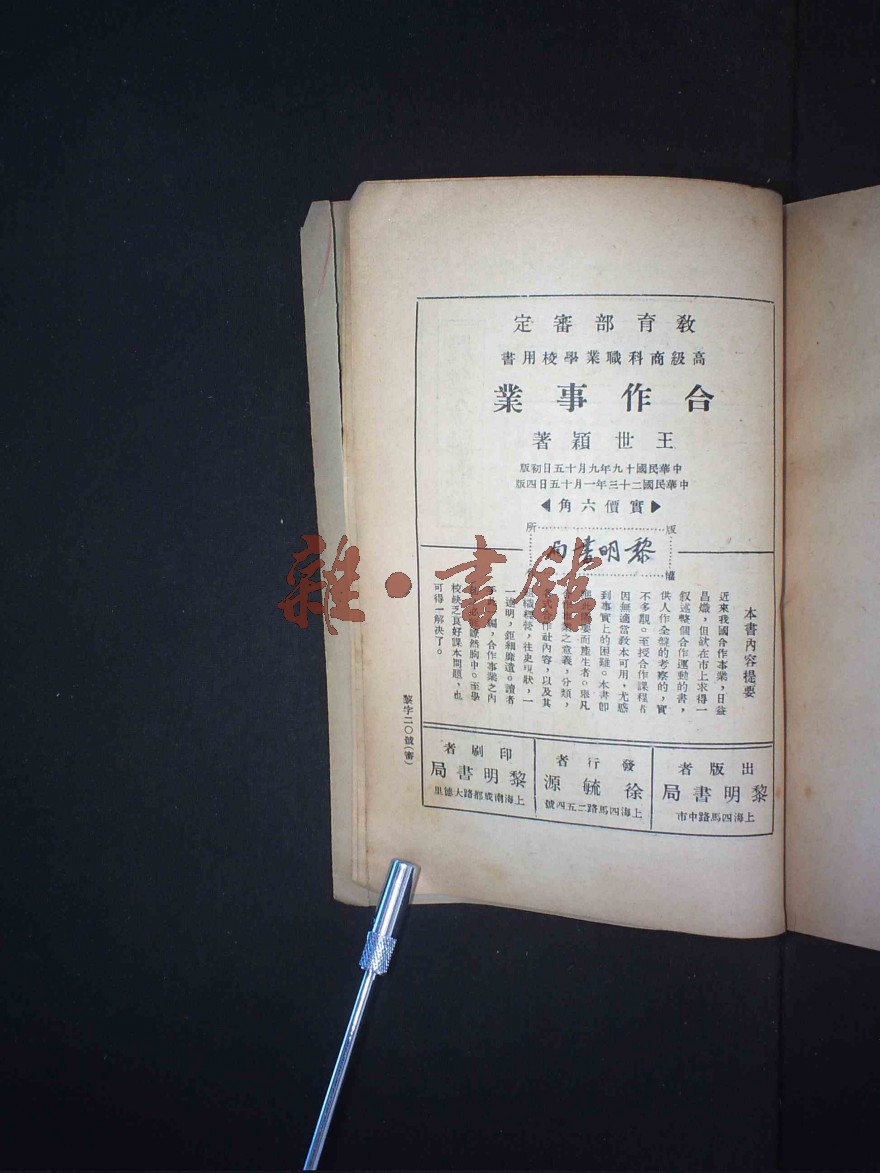 教育部審定
高級商科職業學校用書
合作事業
王世穎著
中華民國十九年九月十五日初版
中華民國二十三年一月十五日四版
▶實價六角◀
版
所
黎明書局
本書內容提要
近來我國合作事業，日益
昌熾，但欲在市上求得一
叙述整個合作運動的書，
供人作全盤的考察的，實
不多覯。至授合作課程者
因無適當教本可用，尤感
到事實上的困難。本書卽
而產生者。舉凡
之意義，分類，
作社內容，以及其
營，往史現狀，一
一達明，鉅細靡遺。讀者
編，合作事業之內
瞭然胸中。至學
校缺乏良好課本問題，也
可得一解決了。
出版者
黎明書局
上海四馬路中市
發行者
徐毓源
上海四馬路二五四號
印刷者
黎明書局
上海南成都路大德里
黎字二〇號(審)
雜·書館